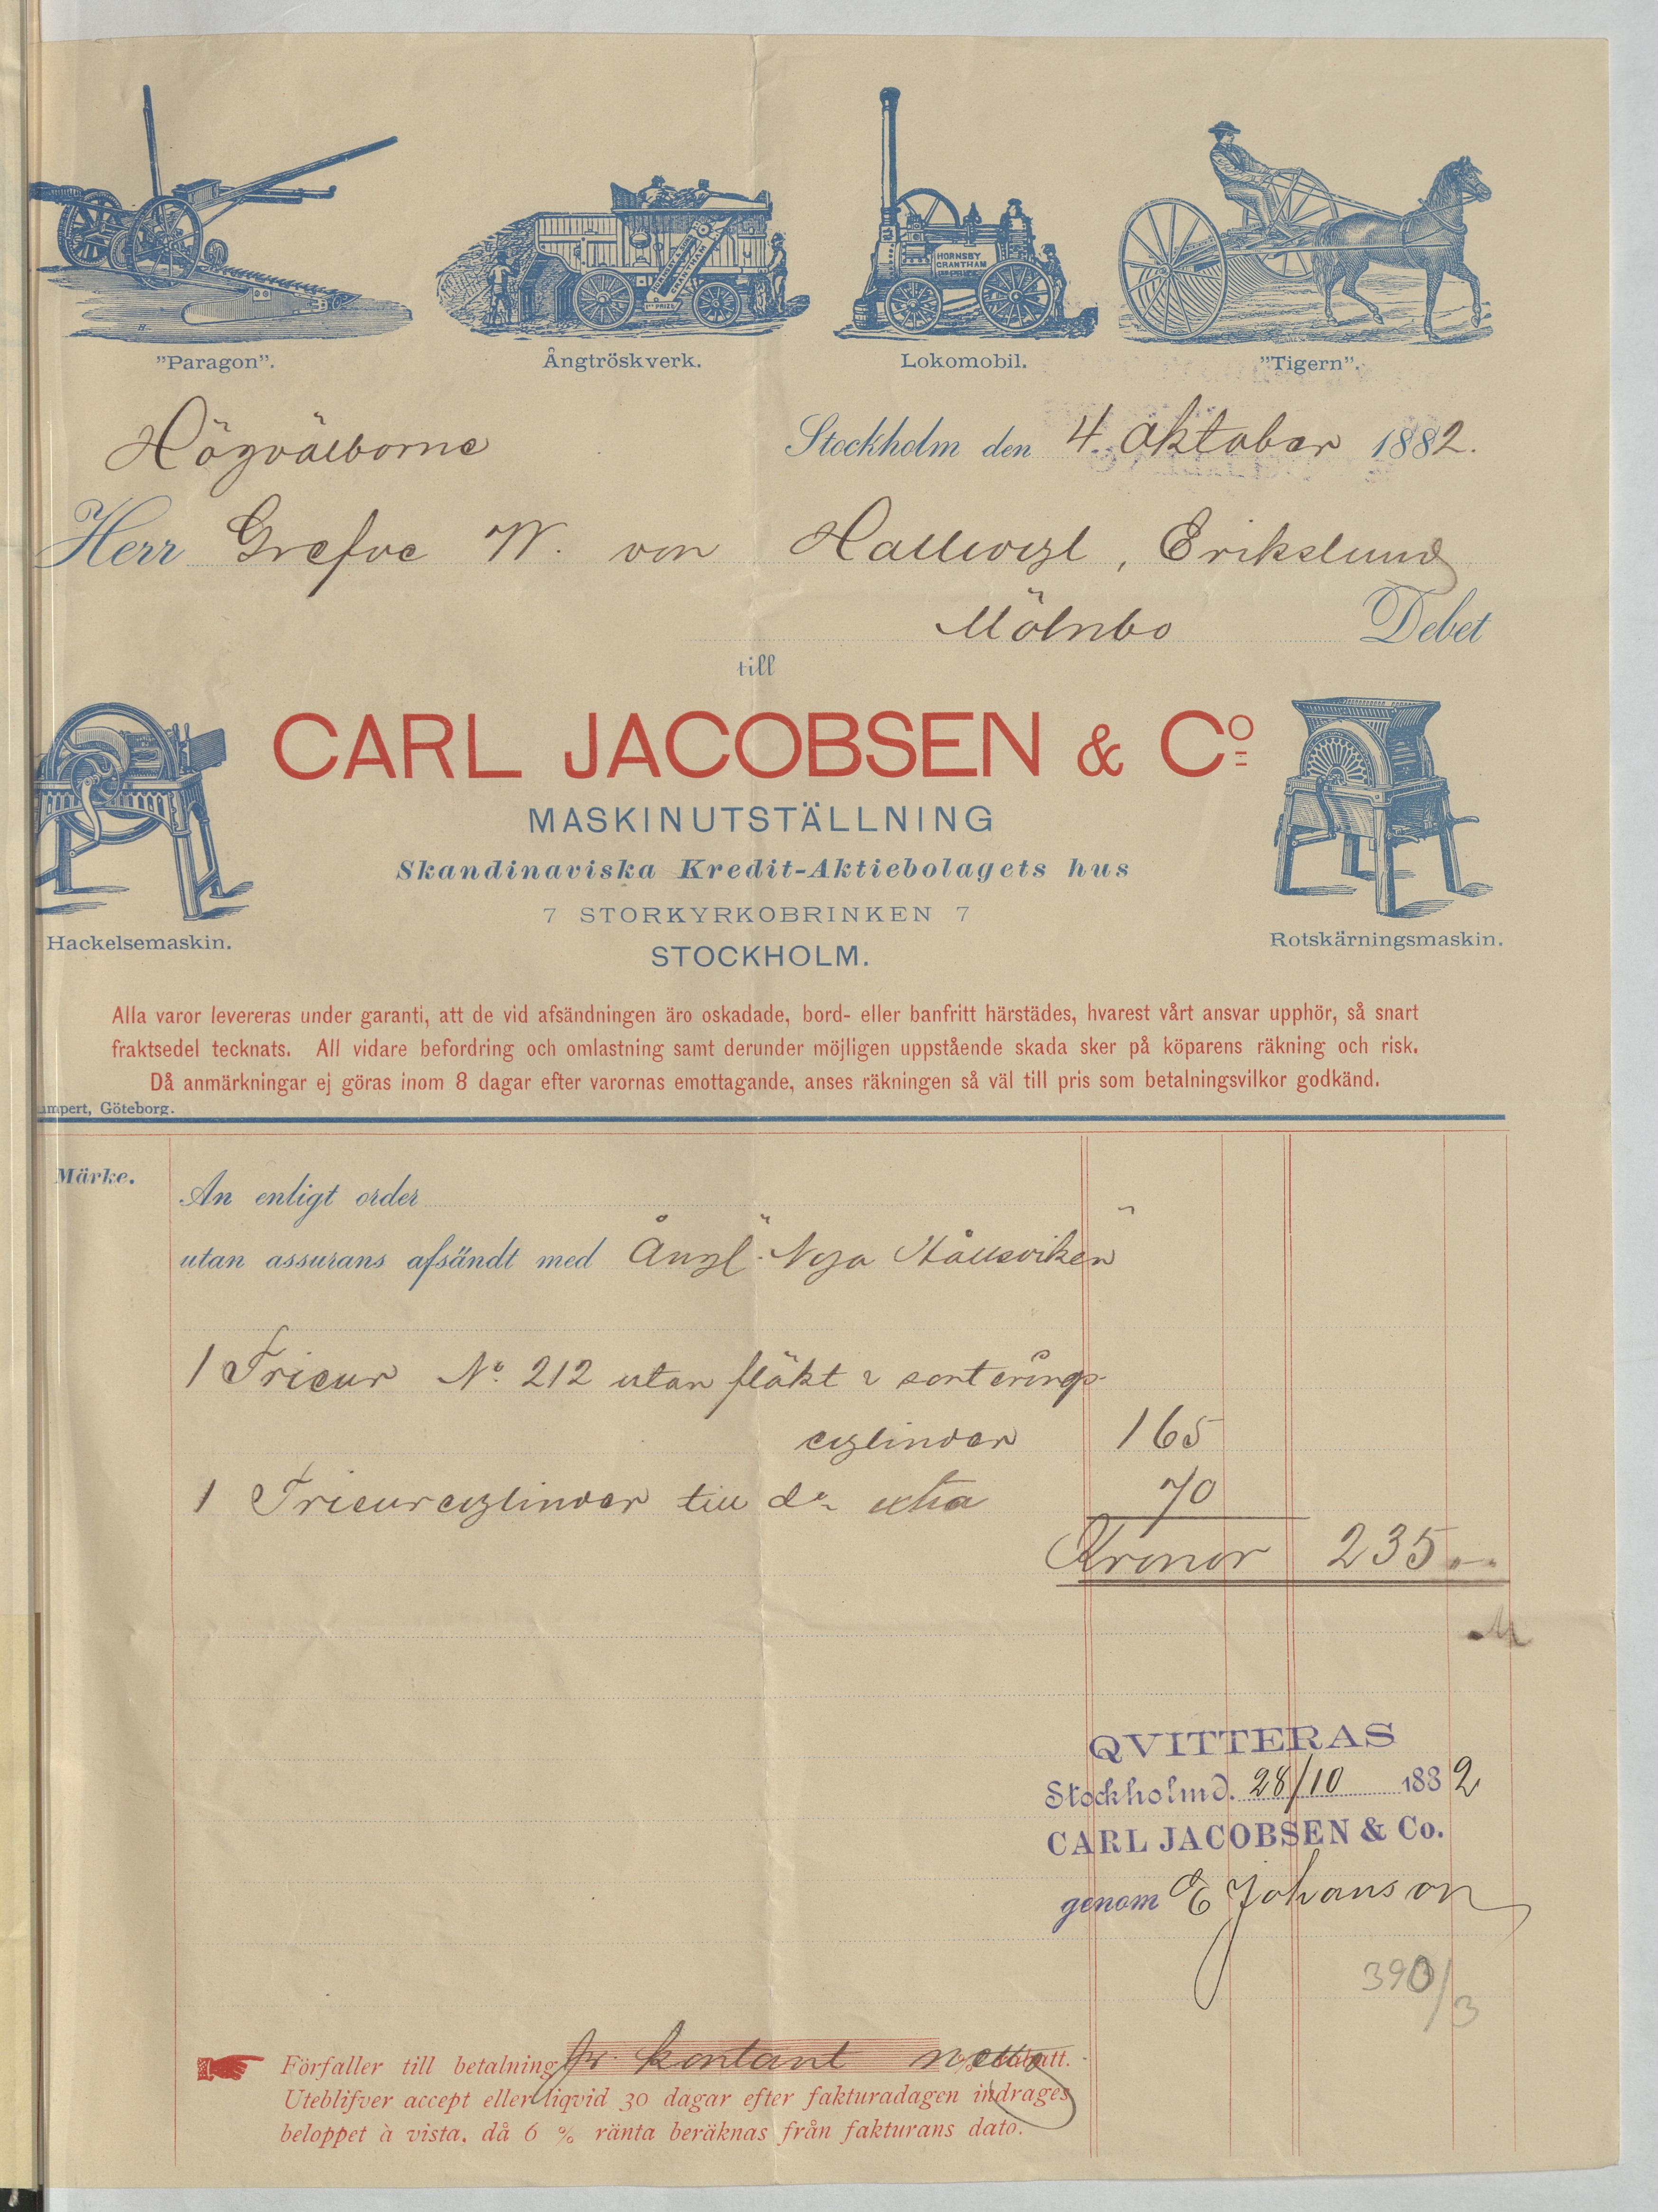 "Paragon".
Ångtröskverk.
HORNSBY
GRANTHAM
Lokomobil.
"Tigern".
Högvälborne
Stockholm den 4 Oktober 1882.
Herr Grefve W. von Hallwyl, Erikslund
Mölnbo Debet
till
CARL JACOBSEN & Co
MASKINUTSTÄLLNING
Skandinaviska Kredit-Aktiebolagets hus
7 STORKYRKOBRINKEN 7
STOCKHOLM.
Hackelsemaskin.
Rotskärningsmaskin.
Alla varor levereras under garanti, att de vid afsändningen äro oskadade, bord- eller banfritt härstädes, hvarest vårt ansvar upphör, så snart
fraktsedel tecknats. All vidare befordring och omlastning samt derunder möjligen uppstående skada sker på köparens räkning och risk.
Då anmärkningar ej göras inom 8 dagar efter varornas emottagande, anses räkningen så väl till pris som betalningsvilkor godkänd.
mpert, Göteborg.
Märke.
An enligt order
utan assurans afsändt med Ångf. "Nya Hållsviken"
1 Trieur No. 212 utan fläkt & sorterings-
cylinder 165
1 Trieurcylinder till do extra 70
Kronor 235 "-
QVITTERAS
Stockholm d. 28/10 1882
CARL JACOBSEN & Co.
genom E Johanson
390/3
Förfaller till betalning pr. kontant netto % rabatt.
Uteblifver accept eller liqvid 30 dagar efter fakturadagen indrages
beloppet à vista, då 6 % ränta beräknas från fakturans dato.